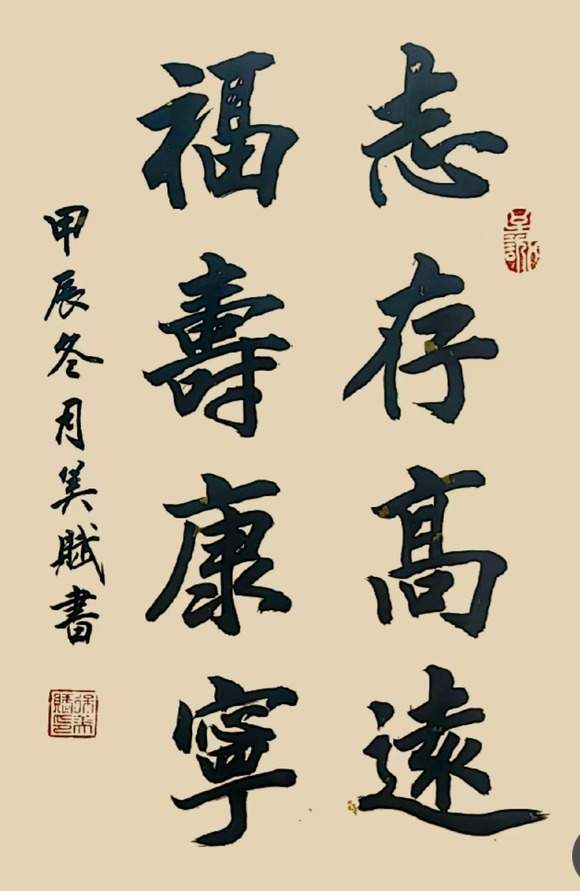 志存高遠
福壽康寧
甲辰冬月美賦書